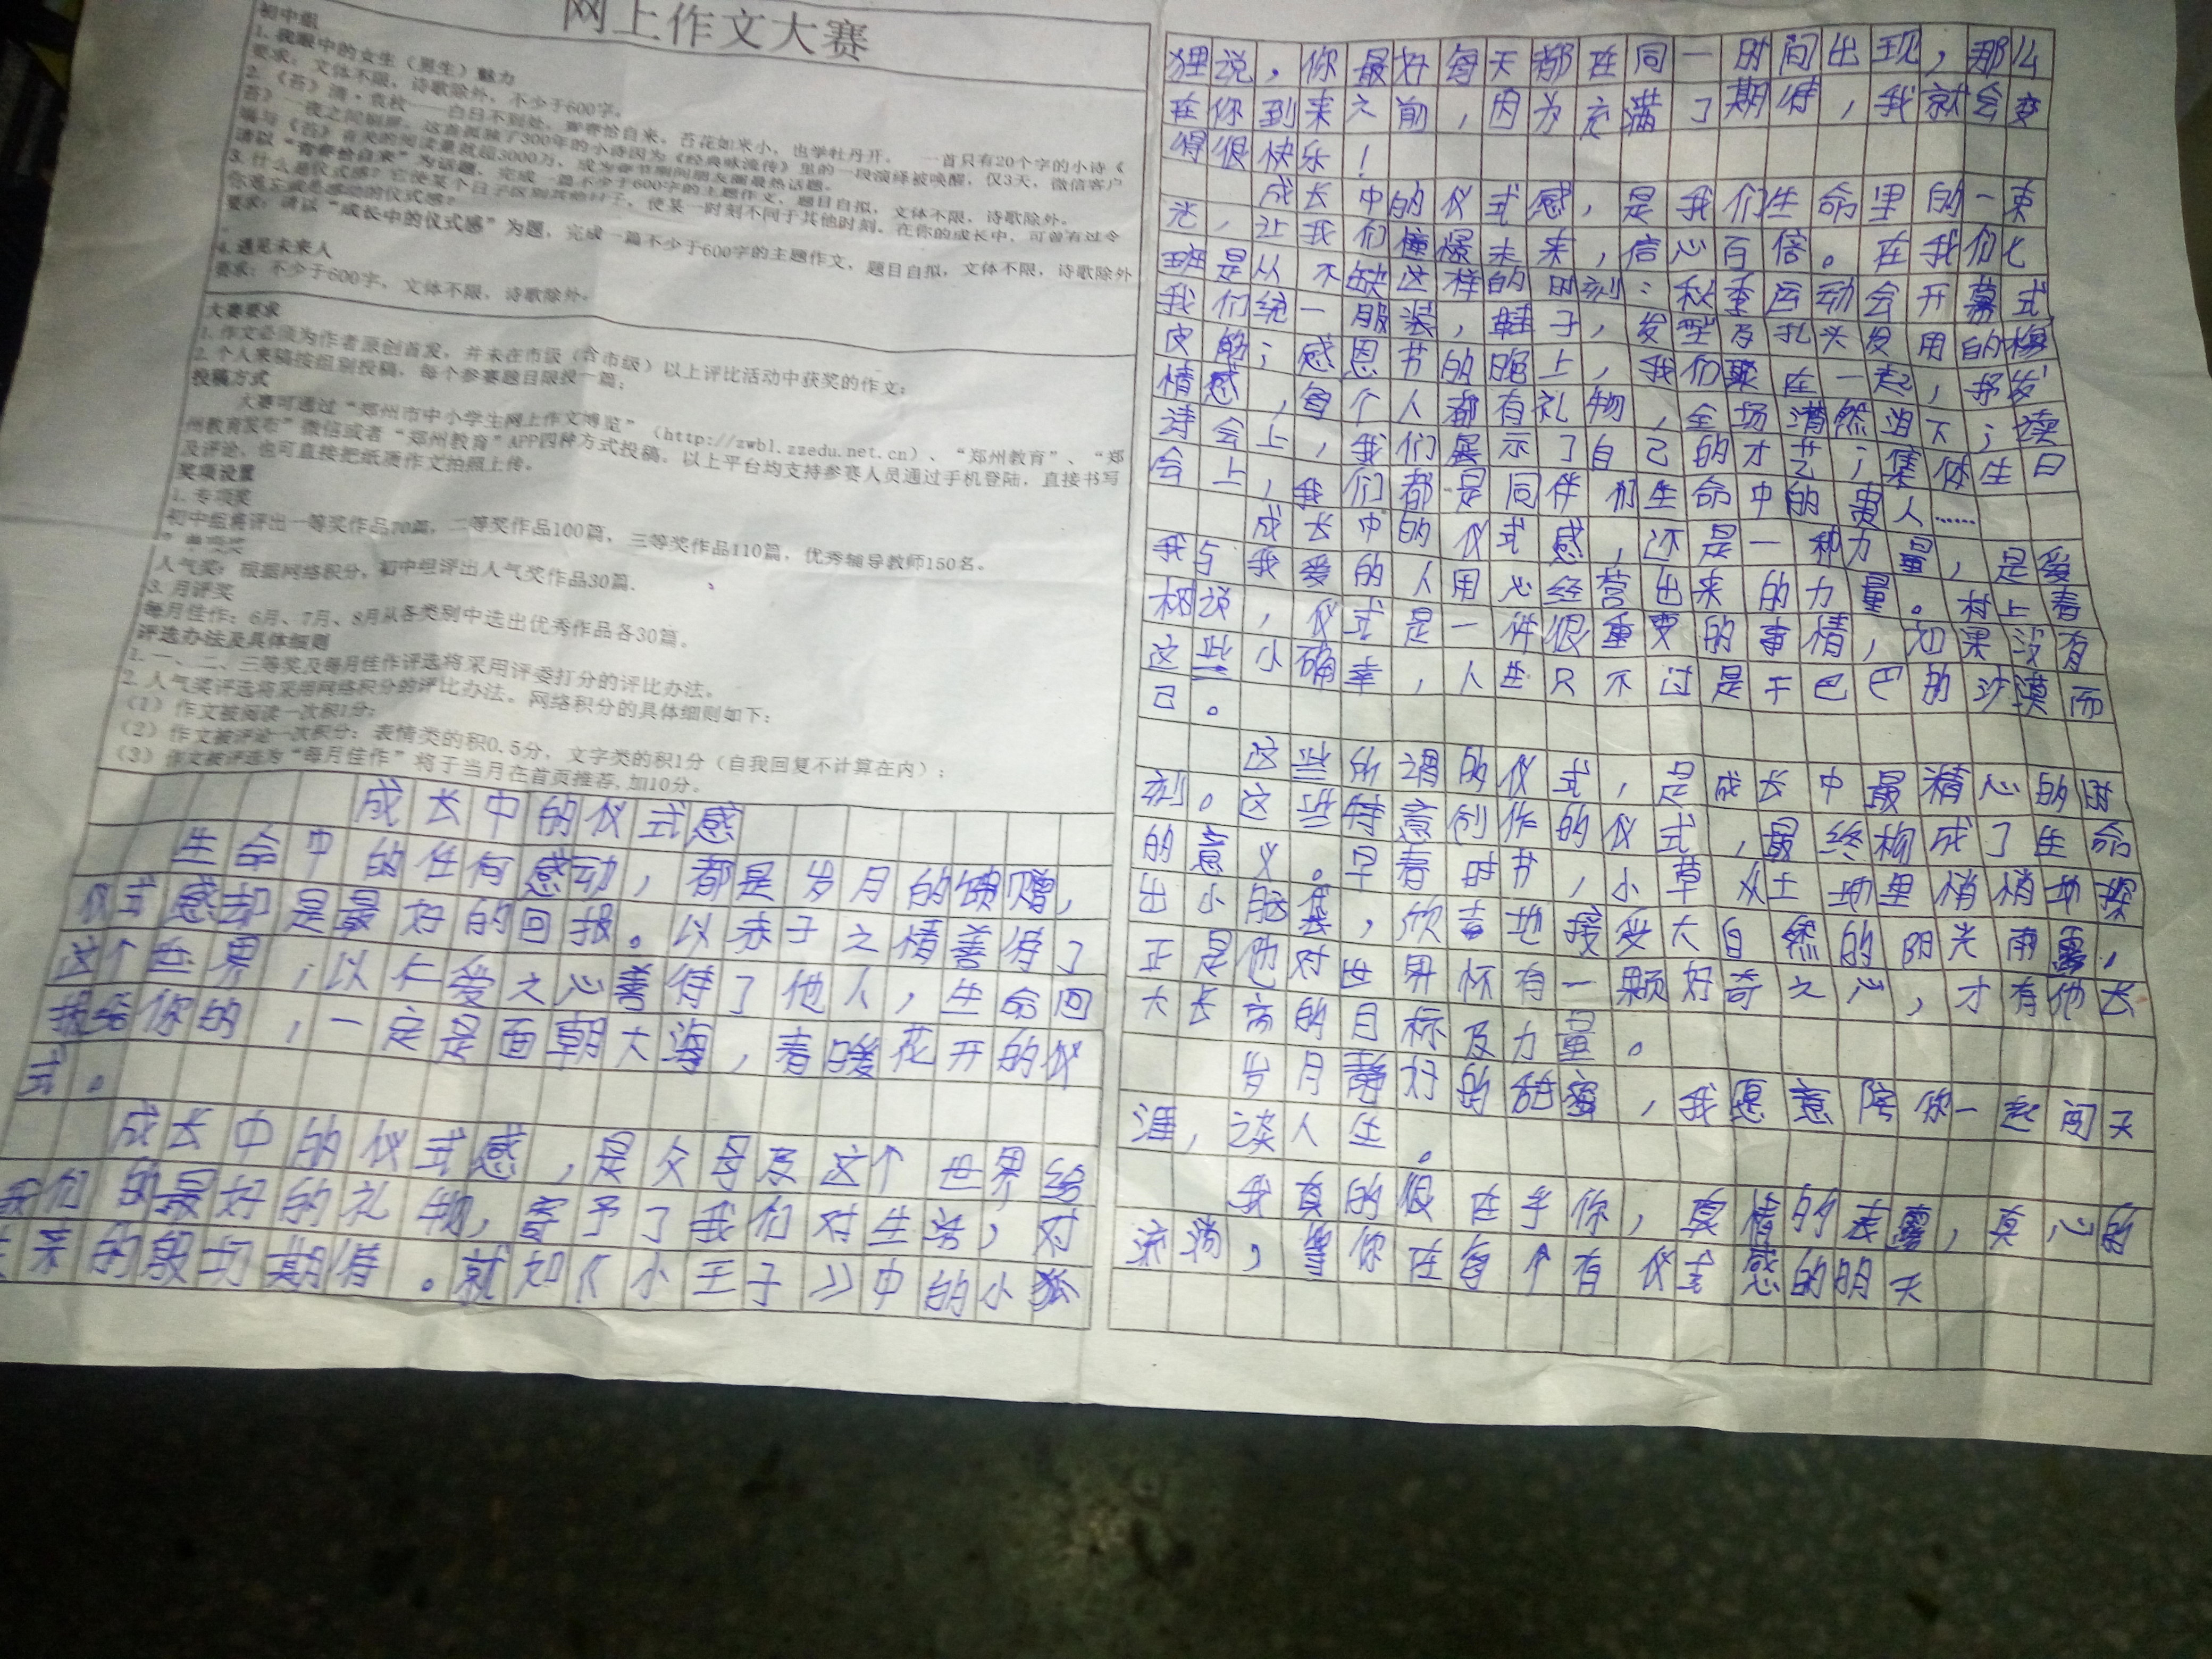 网上作文大赛
初中组
1. 我眼中的女生（男生）魅力
要求：文体不限，诗歌除外，不少于600字。
2. 《苔》清·袁枚——白日不到处，青春恰自来。苔花如米小，也学牡丹开。 一首只有20个字的小诗《
苔》一夜之间刷屏，这首孤独了300年的小诗因为《经典咏流传》里的一段演绎被唤醒，仅3天，微信客户
端与《苔》有关的阅读量就超3000万，成为春节期间朋友圈最热话题。
请以“青春恰自来”为话题，完成一篇不少于600字的主题作文，题目自拟，文体不限，诗歌除外。
3. 什么是仪式感？它使某个日子区别其他日子，使某一时刻不同于其他时刻。在你的成长中，可曾有过令
你难忘或是感动的仪式感？
要求：请以“成长中的仪式感”为题，完成一篇不少于600字的主题作文，题目自拟，文体不限，诗歌除外
。
4. 遇见未来人
要求：不少于600字，文体不限，诗歌除外。
大赛要求
1. 作文必须为作者原创首发，并未在市级（含市级）以上评比活动中获奖的作文；
2. 个人来稿按组别投稿，每个参赛题目限投一篇；
投稿方式
大赛可通过“郑州市中小学生网上作文博览”（http://zwbl.zzedu.net.cn）、“郑州教育”、“郑
州教育发布”微信或者“郑州教育”APP四种方式投稿。以上平台均支持参赛人员通过手机登陆，直接书写
及评论，也可直接把纸质作文拍照上传。
奖项设置
1. 专项奖
初中组将评出一等奖作品70篇，二等奖作品100篇，三等奖作品110篇，优秀辅导教师150名。
2 单项奖
人气奖：根据网络积分，初中组评出人气奖作品30篇.
3. 月评奖
每月佳作：6月、7月、8月从各类别中选出优秀作品各30篇。
评选办法及具体细则
1. 一、二、三等奖及每月佳作评选将采用评委打分的评比办法。
2. 人气奖评选将采用网络积分的评比办法。网络积分的具体细则如下：
（1）作文被阅读一次积1分；
（2）作文被评论一次积分：表情类的积0.5分，文字类的积1分（自我回复不计算在内）；
（3）作文被评选为“每月佳作”将于当月在首页推荐,加10分。
成长中的仪式感
生命中的任何感动，都是岁月的馈赠，
仪式感却是最好的回报。以赤子之情善待了
这个世界；以仁爱之心善待了他人，生命回
报给你的，一定是面朝大海，春暖花开的仪
式。
成长中的仪式感，是父母及这个世界给
我们的最好的礼物，寄予了我们对生活，对
未来的殷切期待。就如《小王子》中的小狐
狸说，你最好每天都在同一时间出现，那么
在你到来之前，因为充满了期待，我就会变
得很快乐！
成长中的仪式感，是我们生命里的一束
光，让我们憧憬未来，信心百倍。在我们七
班是从不缺这样的时刻：秋季运动会开幕式
我们统一服装，鞋子，发型及扎头发用的橡
皮筋；感恩节的晚上，我们聚在一起，抒发
情感，每个人都有礼物，全场潸然泪下；读
诗会上，我们展示了自己的才艺；集体生日
会上，我们都是同伴们生命中的贵人……
成长中的仪式感，还是一种力量，是爱
我与我爱的人用心经营出来的力量。村上春
树说，仪式是一件很重要的事情，如果没有
这些小确幸，人生只不过是干巴巴的沙漠而
已。
这些所谓的仪式，是成长中最精心的时
刻。这些特意创作的仪式，最终构成了生命
的意义。早春时节，小草从土地里悄悄地探
出小脑袋，欣喜地接受大自然的阳光雨露，
正是他对世界怀有一颗好奇之心，才有他长
大长高的目标及力量。
岁月静好的甜蜜，我愿意陪你一起闯天
涯，谈人生。
我真的很在乎你，真情的表露，真心的
流淌，当你在每个有仪式感的明天